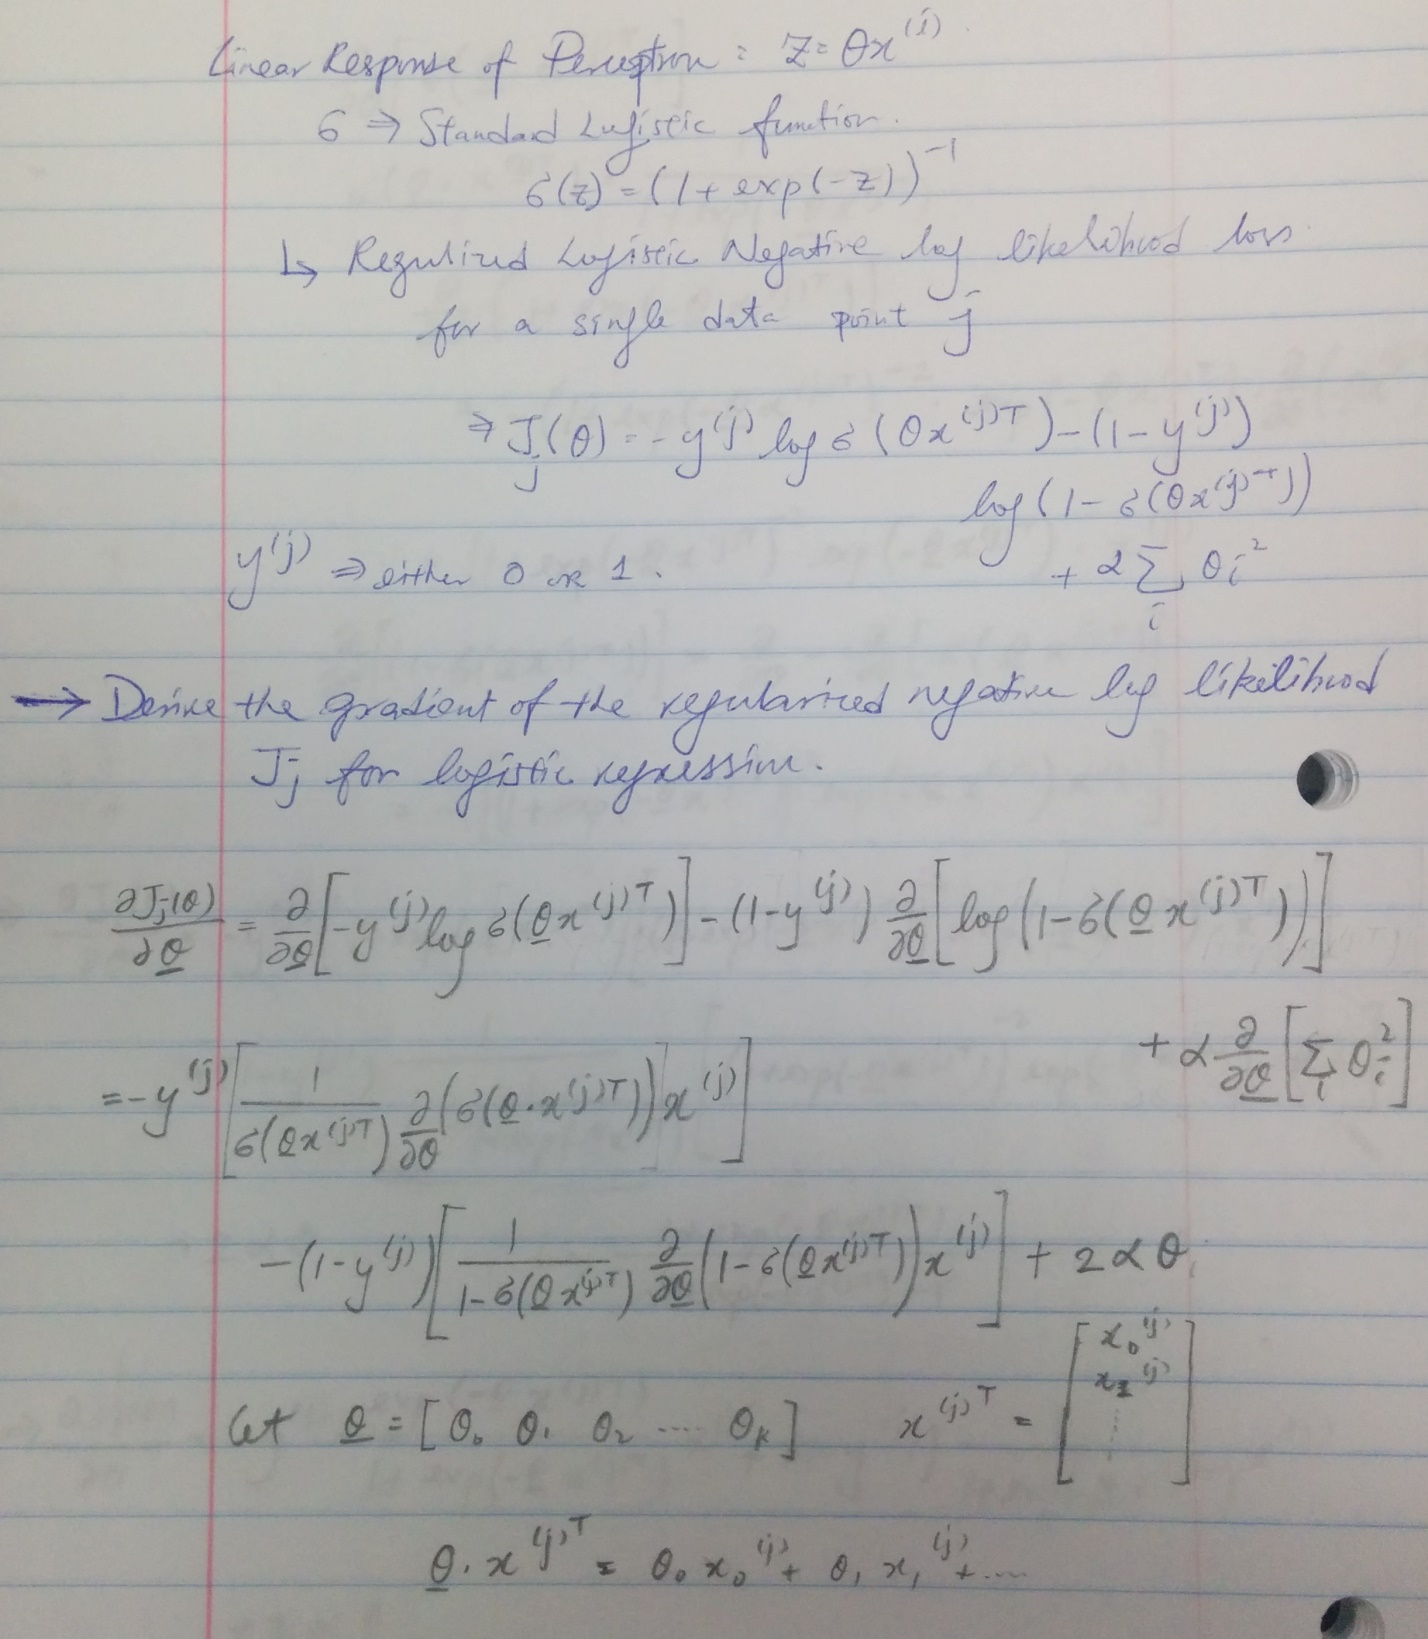 Linear Response of Perceptron : z = θx^(j)
σ ⇒ Standard Logistic function.
σ(z) = (1 + exp(-z))^-1
↳ Regulized Logistic Negative log likelihood loss
for a single data point j
⇒ J_j(θ) = -y^(j) log σ(θx^(j)T) - (1 - y^(j))
log(1 - σ(θx^(j)T))
+ α Σ_i θ_i^2
y^(j) ⇒ either 0 or 1.
→ Derive the gradient of the regularized negative log likelihood
J_j for logistic regression.
∂J_j(θ)/∂θ = ∂/∂θ [-y^(j) log σ(θx^(j)T)] - (1-y^(j)) ∂/∂θ [log(1-σ(θx^(j)T))]
+ α ∂/∂θ [Σ_i θ_i^2]
= -y^(j) [1/σ(θx^(j)T) ∂/∂θ (σ(θ·x^(j)T)) x^(j)]
-(1-y^(j)) [1/(1-σ(θx^(j)T)) ∂/∂θ (1-σ(θx^(j)T)) x^(j)] + 2αθ
Let θ = [θ_0 θ_1 θ_2 .... θ_k] x^(j)T = [x_0^(j) x_1^(j) ....]
θ·x^(j)T = θ_0 x_0^(j) + θ_1 x_1^(j) + ....